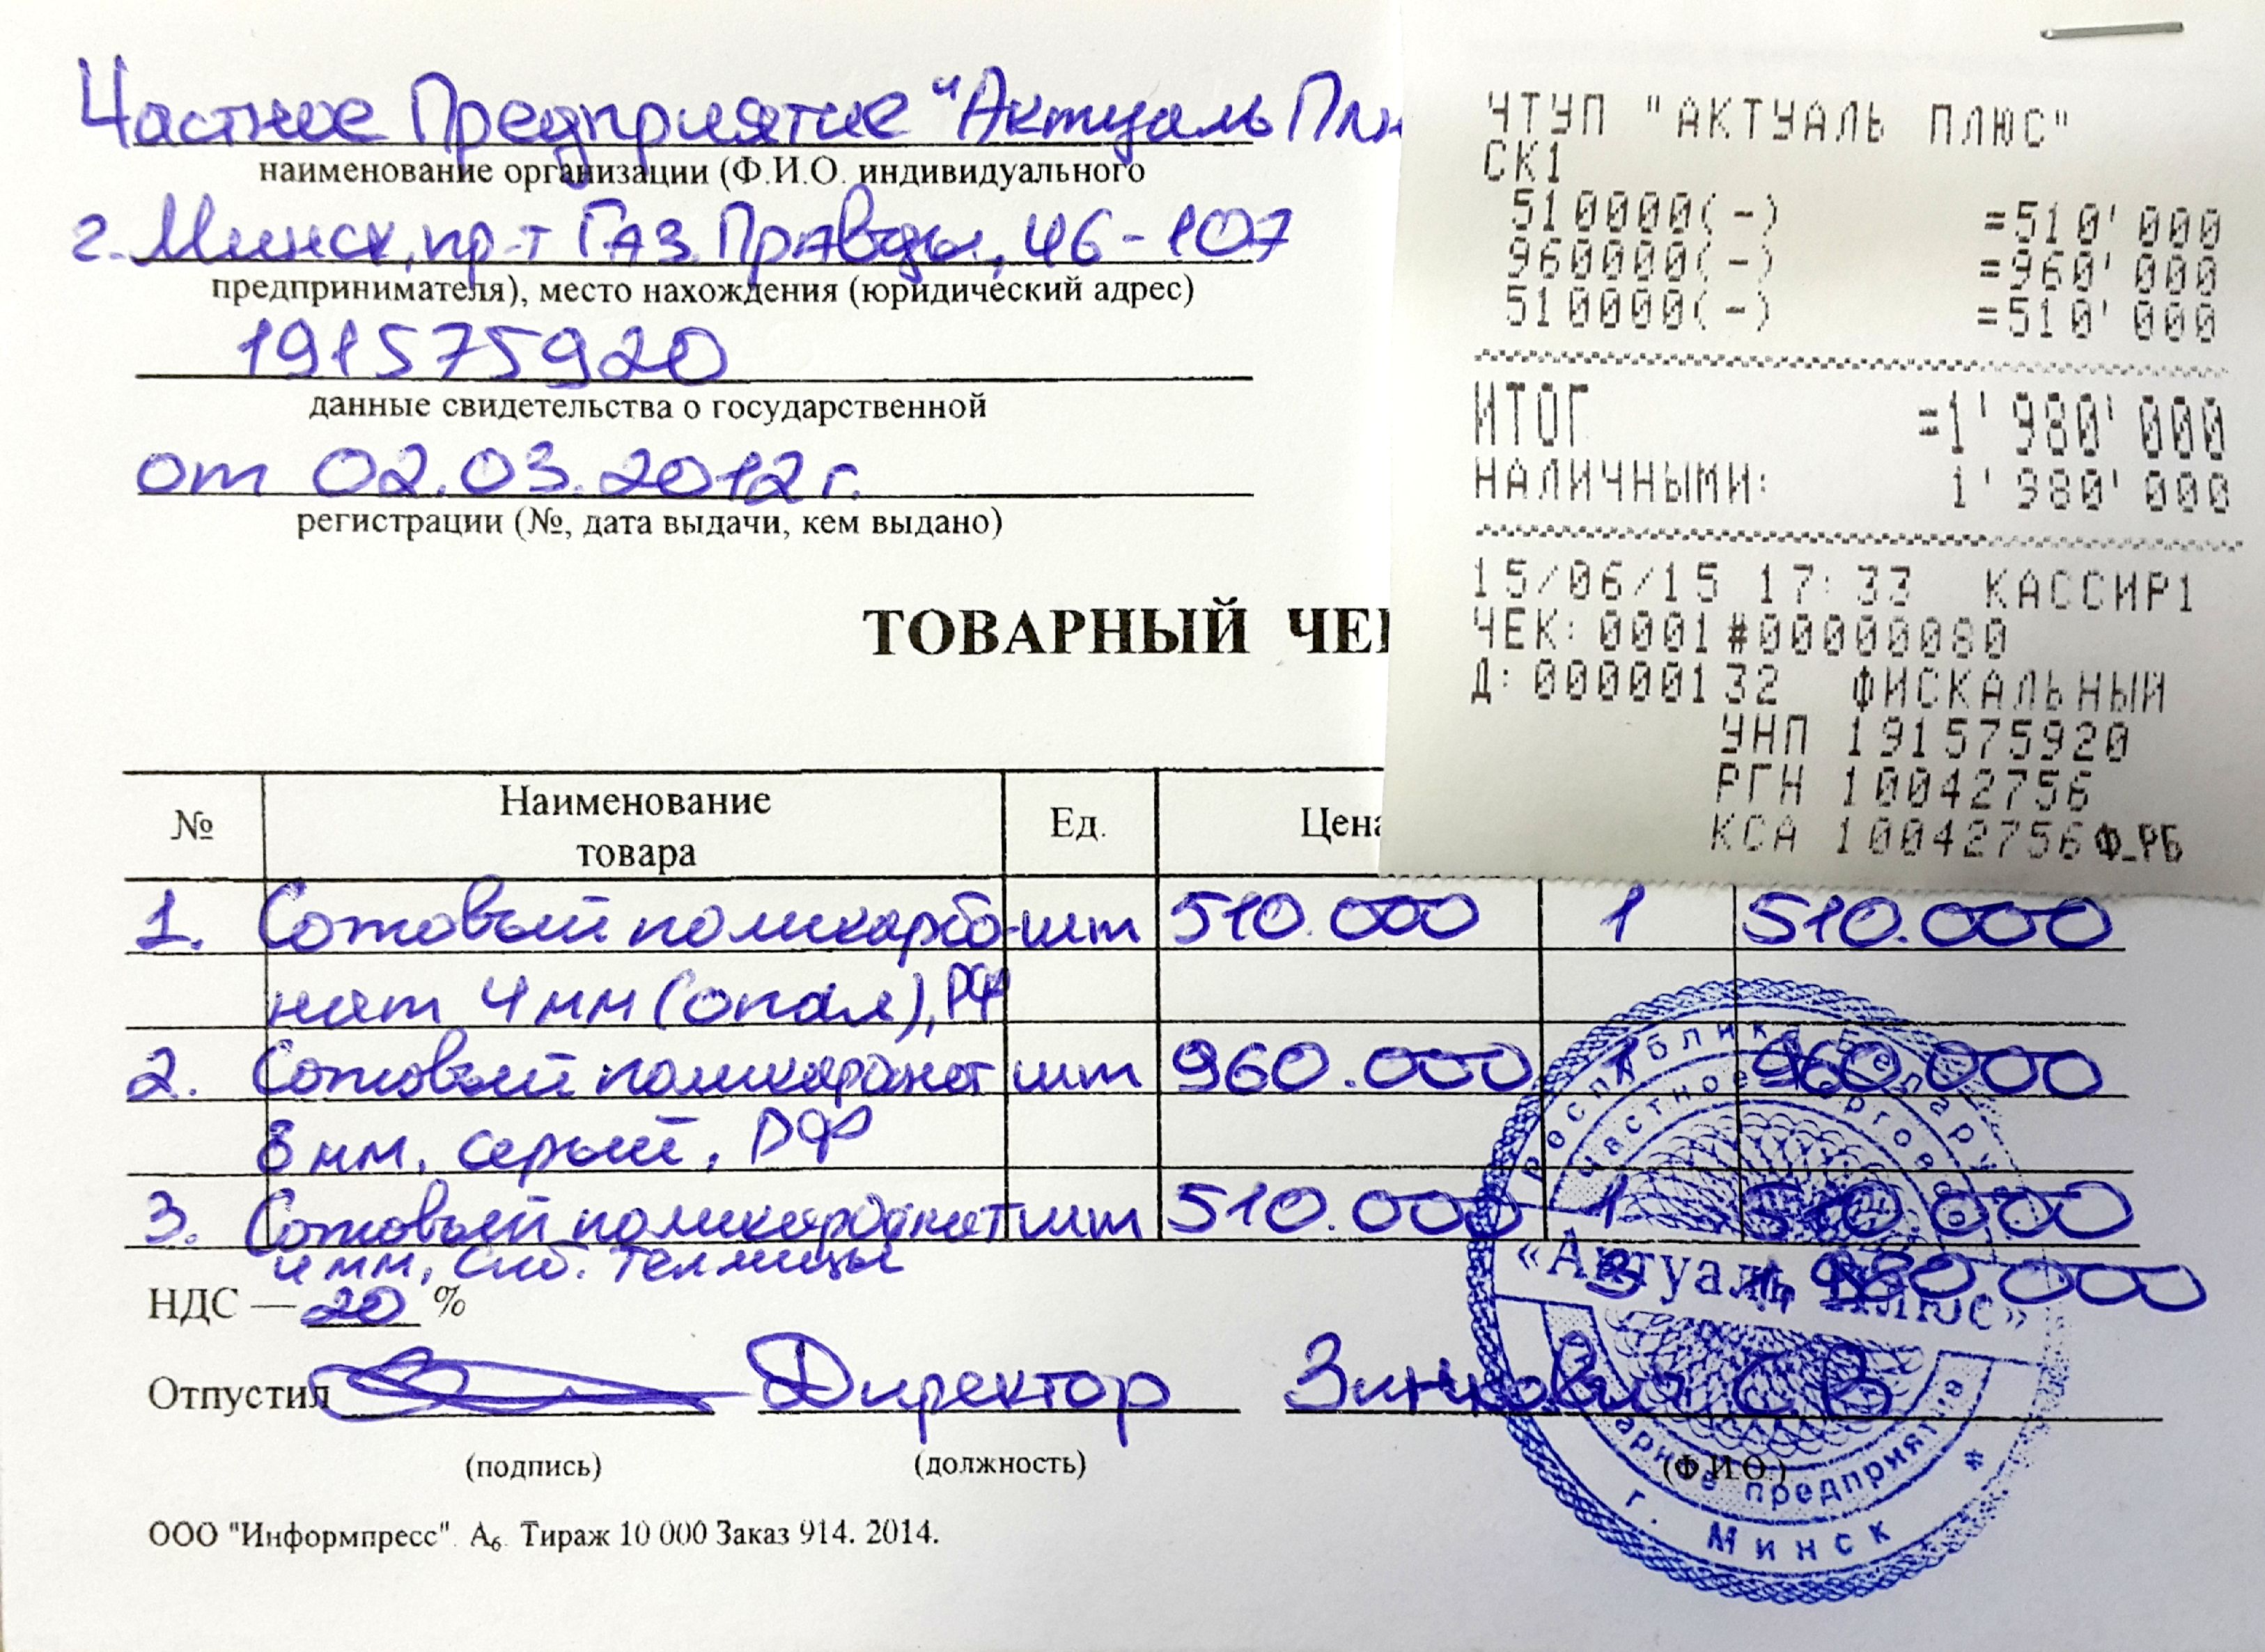 Частное Предприятие "Актуаль Плю
наименование организации (Ф.И.О. индивидуального
г. Минск, пр-т Газ. Правды, 46-107
предпринимателя), место нахождения (юридический адрес)
191575920
данные свидетельства о государственной
от 02.03.2012 г.
регистрации (№, дата выдачи, кем выдано)
ЧТУП "АКТУАЛЬ ПЛЮС"
СК1
510000(-) =510'000
960000(-) =960'000
510000(-) =510'000
ИТОГ =1'980'000
НАЛИЧНЫМИ: 1'980'000
15/06/15 17:33 КАССИР1
ЧЕК: 0001 #00000080
Д: 00000132 ФИСКАЛЬНЫЙ
УНП 191575920
РГН 10042756
КСА 10042756 Ф_РБ
ТОВАРНЫЙ ЧЕК
№ Наименование товара Ед. Цена
1. Сотовый поликарбо- шт 510.000 1 510.000
нат 4 мм (опал), РФ
2. Сотовый поликарбонат шт 960.000 1 960.000
8 мм. серый, РФ
3. Сотовый поликарбонат шт 510.000 1 510.000
4 мм, Сло. Теплицы
3 1.980.000
НДС — 20 %
Отпустил Директор Зинкович С В
(подпись) (должность) (Ф.И.О.)
ООО "Информпресс". А6. Тираж 10 000 Заказ 914. 2014.
Республика Беларусь
Частное торговое
«Актуаль Плюс»
унитарное предприятие
г. Минск